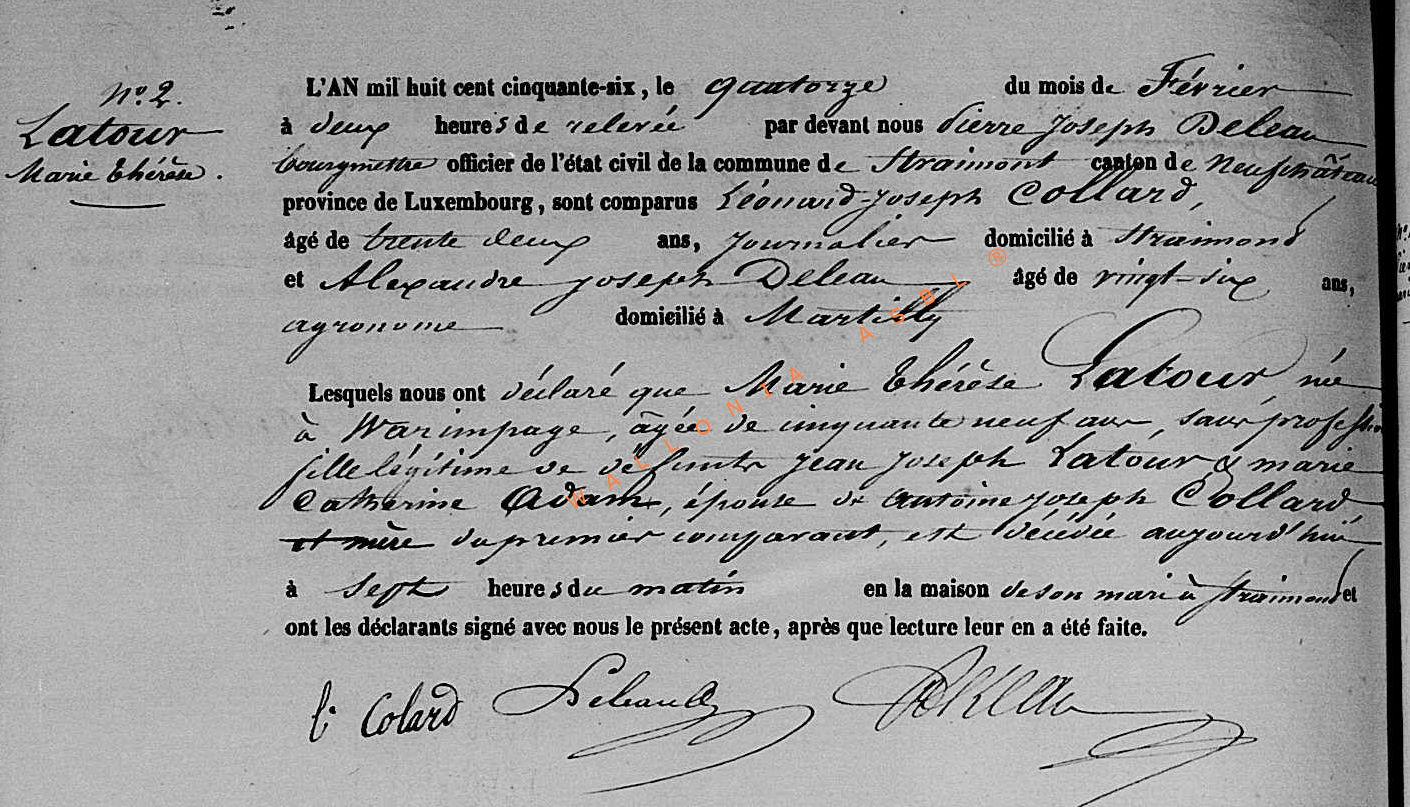 N° 2.
Latour
Marie Thérèse.
L'AN mil huit cent cinquante-six, le quatorze du mois de Février
à deux heures de relevée par devant nous Pierre Joseph Deleau
bourgmestre officier de l'état civil de la commune de Straimont canton de Neufchâteau
province de Luxembourg, sont comparus Léonard-Joseph Collard,
âgé de trente deux ans, journalier domicilié à Straimont
et Alexandre Joseph Deleau âgé de vingt-six ans,
agronome domicilié à Martilly
Lesquels nous ont déclaré que Marie Thérèse Latour née
à Warimpage, âgée de cinquante neuf ans, sans profession
fille légitime de défunts Jean Joseph Latour & marie
Catherine Adam, épouse de Antoine Joseph Collard
et mère du premier comparant, est décédée aujourd'hui
à sept heures du matin en la maison de son mari à Straimont et
ont les déclarants signé avec nous le présent acte, après que lecture leur en a été faite.
l. Colard Deleau Deleau
WALLONIA ASBL ®